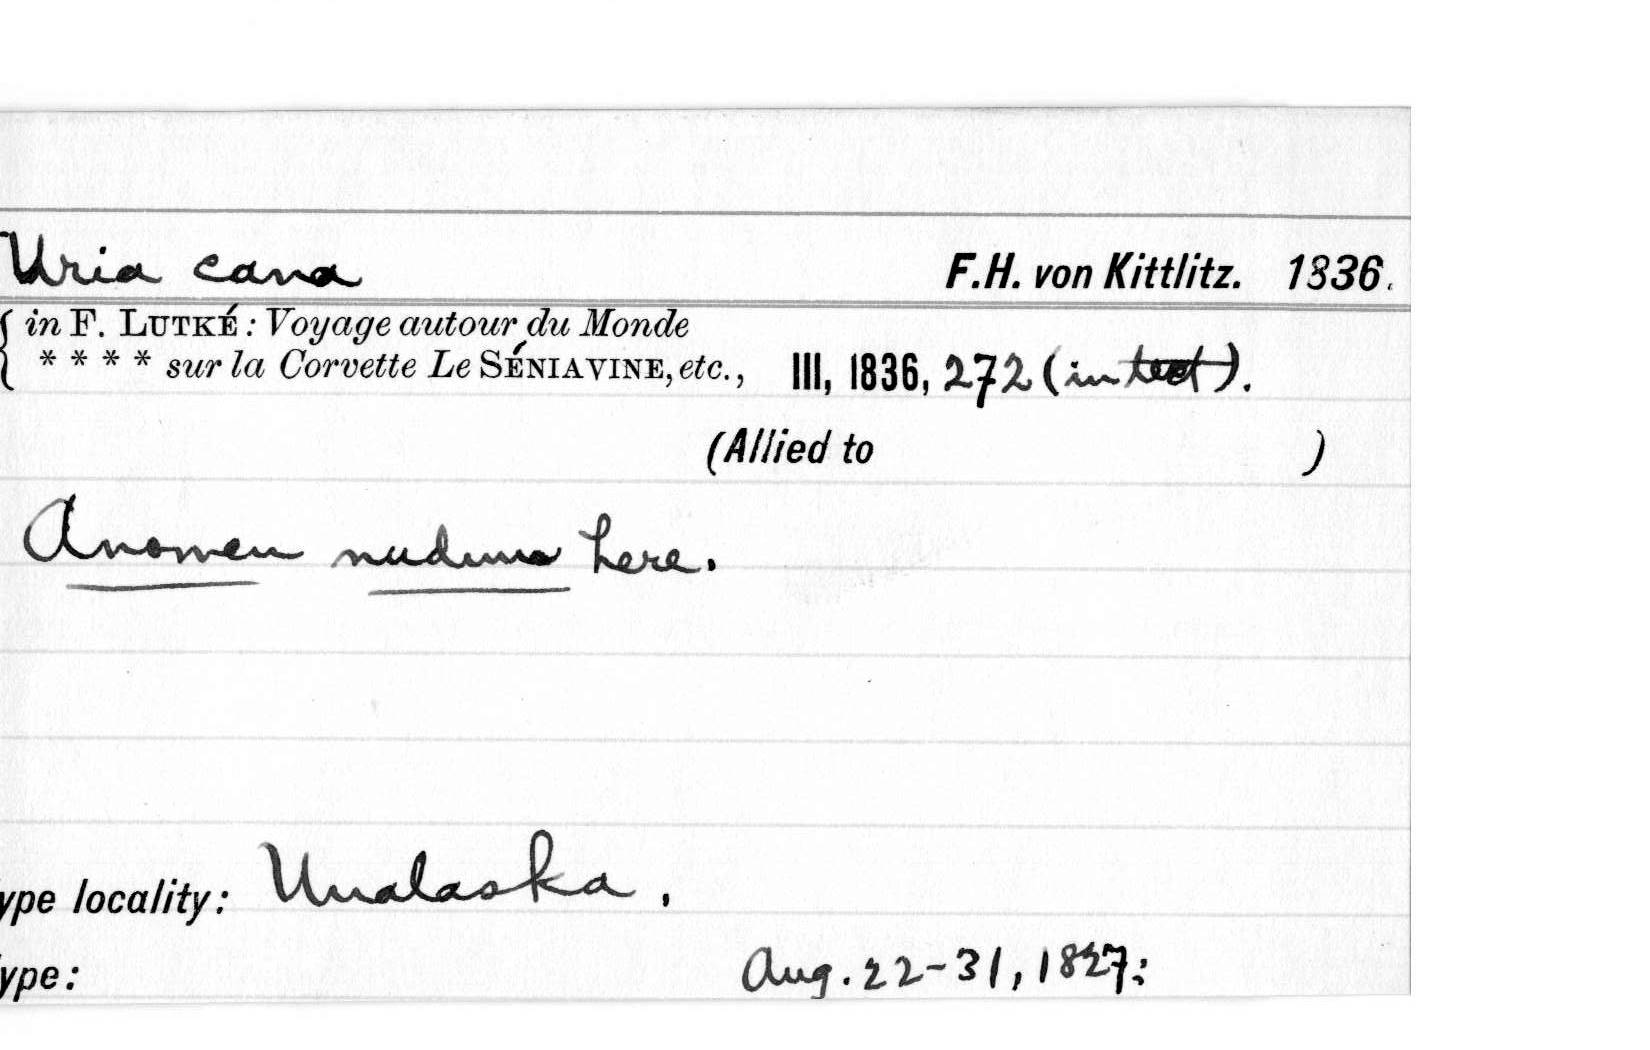 Uria cana F.H. von Kittlitz. 1836.
in F. LUTKÉ: Voyage autour du Monde
* * * * sur la Corvette Le SÉNIAVINE, etc., III, 1836, 272 (in text).
(Allied to )
A nomen nudum here.
ype locality: Unalaska.
ype: Aug. 22-31, 1827;